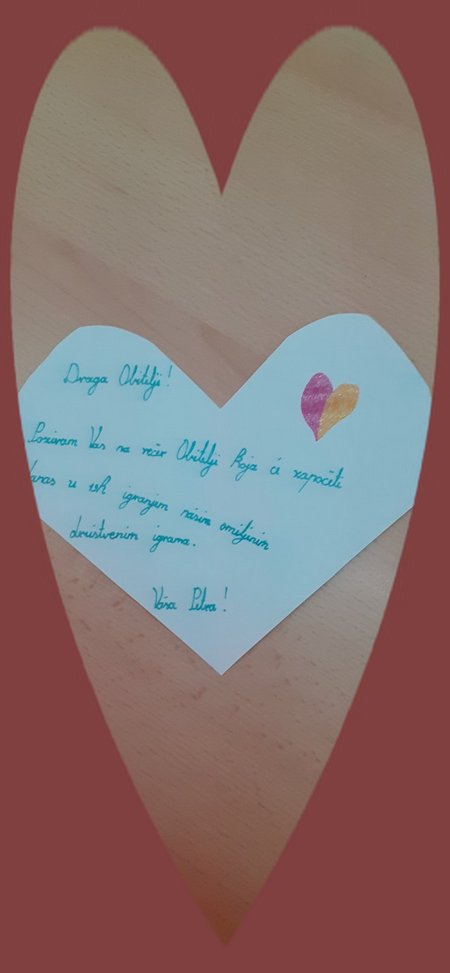 Draga Obitelji!
Pozivam Vas na večer Obitelji koja će započeti
danas u 19h igranjem našim omiljenim
društvenim igrama.
Vaša Petra!